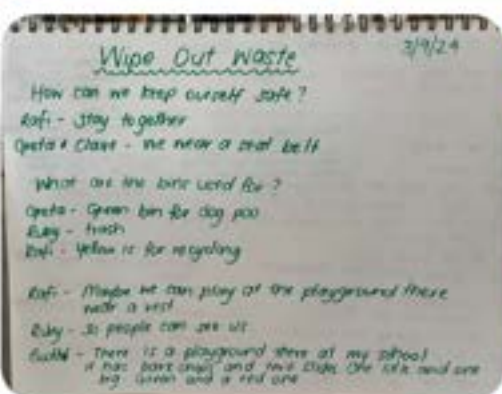 Wipe Out Waste
3/9/24
How can we keep ourself safe?
Rafi - Stay together
Greta & Claire - we wear a seat belt
What are the bins used for?
Greta - Green bin for dog poo
Ruby - trash
Rafi - Yellow is for recycling
Rafi - Maybe we can play at the playground there
wear a vest
Ruby - So people can see us
- There is a playground there at my school
it has and two slides One is and one
big Green and a red one